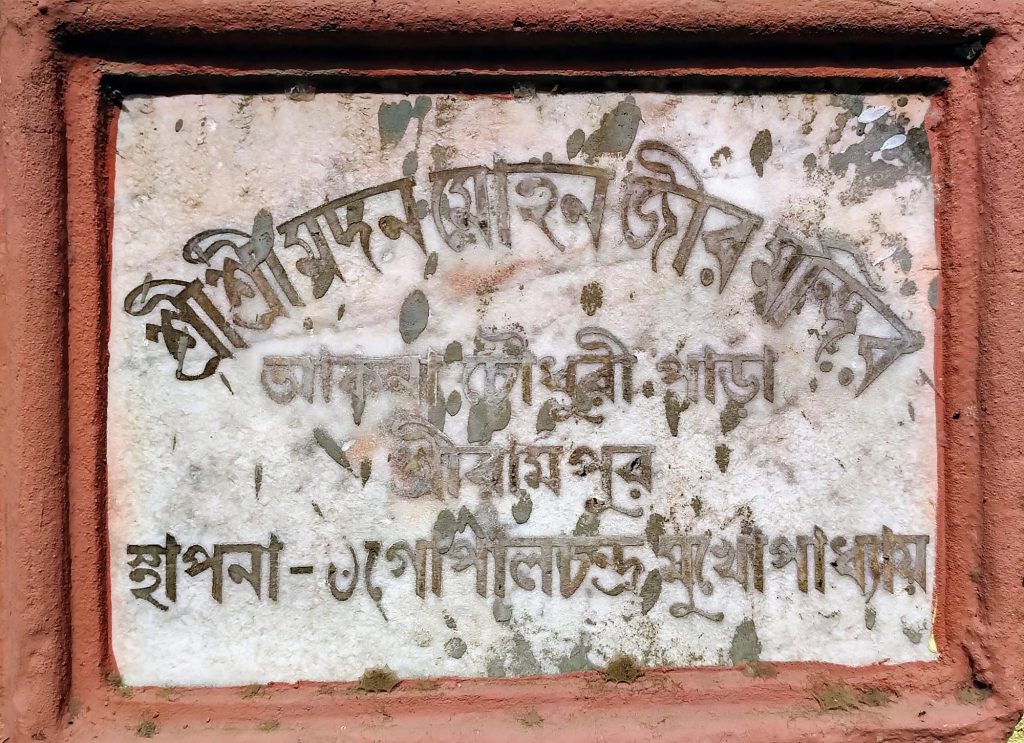 শ্রীশ্রী মদন মোহন জীর মন্দির
আকনা চৌধুরী পাড়া
শ্রীরামপুর
স্থাপনা - ৺গোপালচন্দ্র মুখোপাধ্যায়